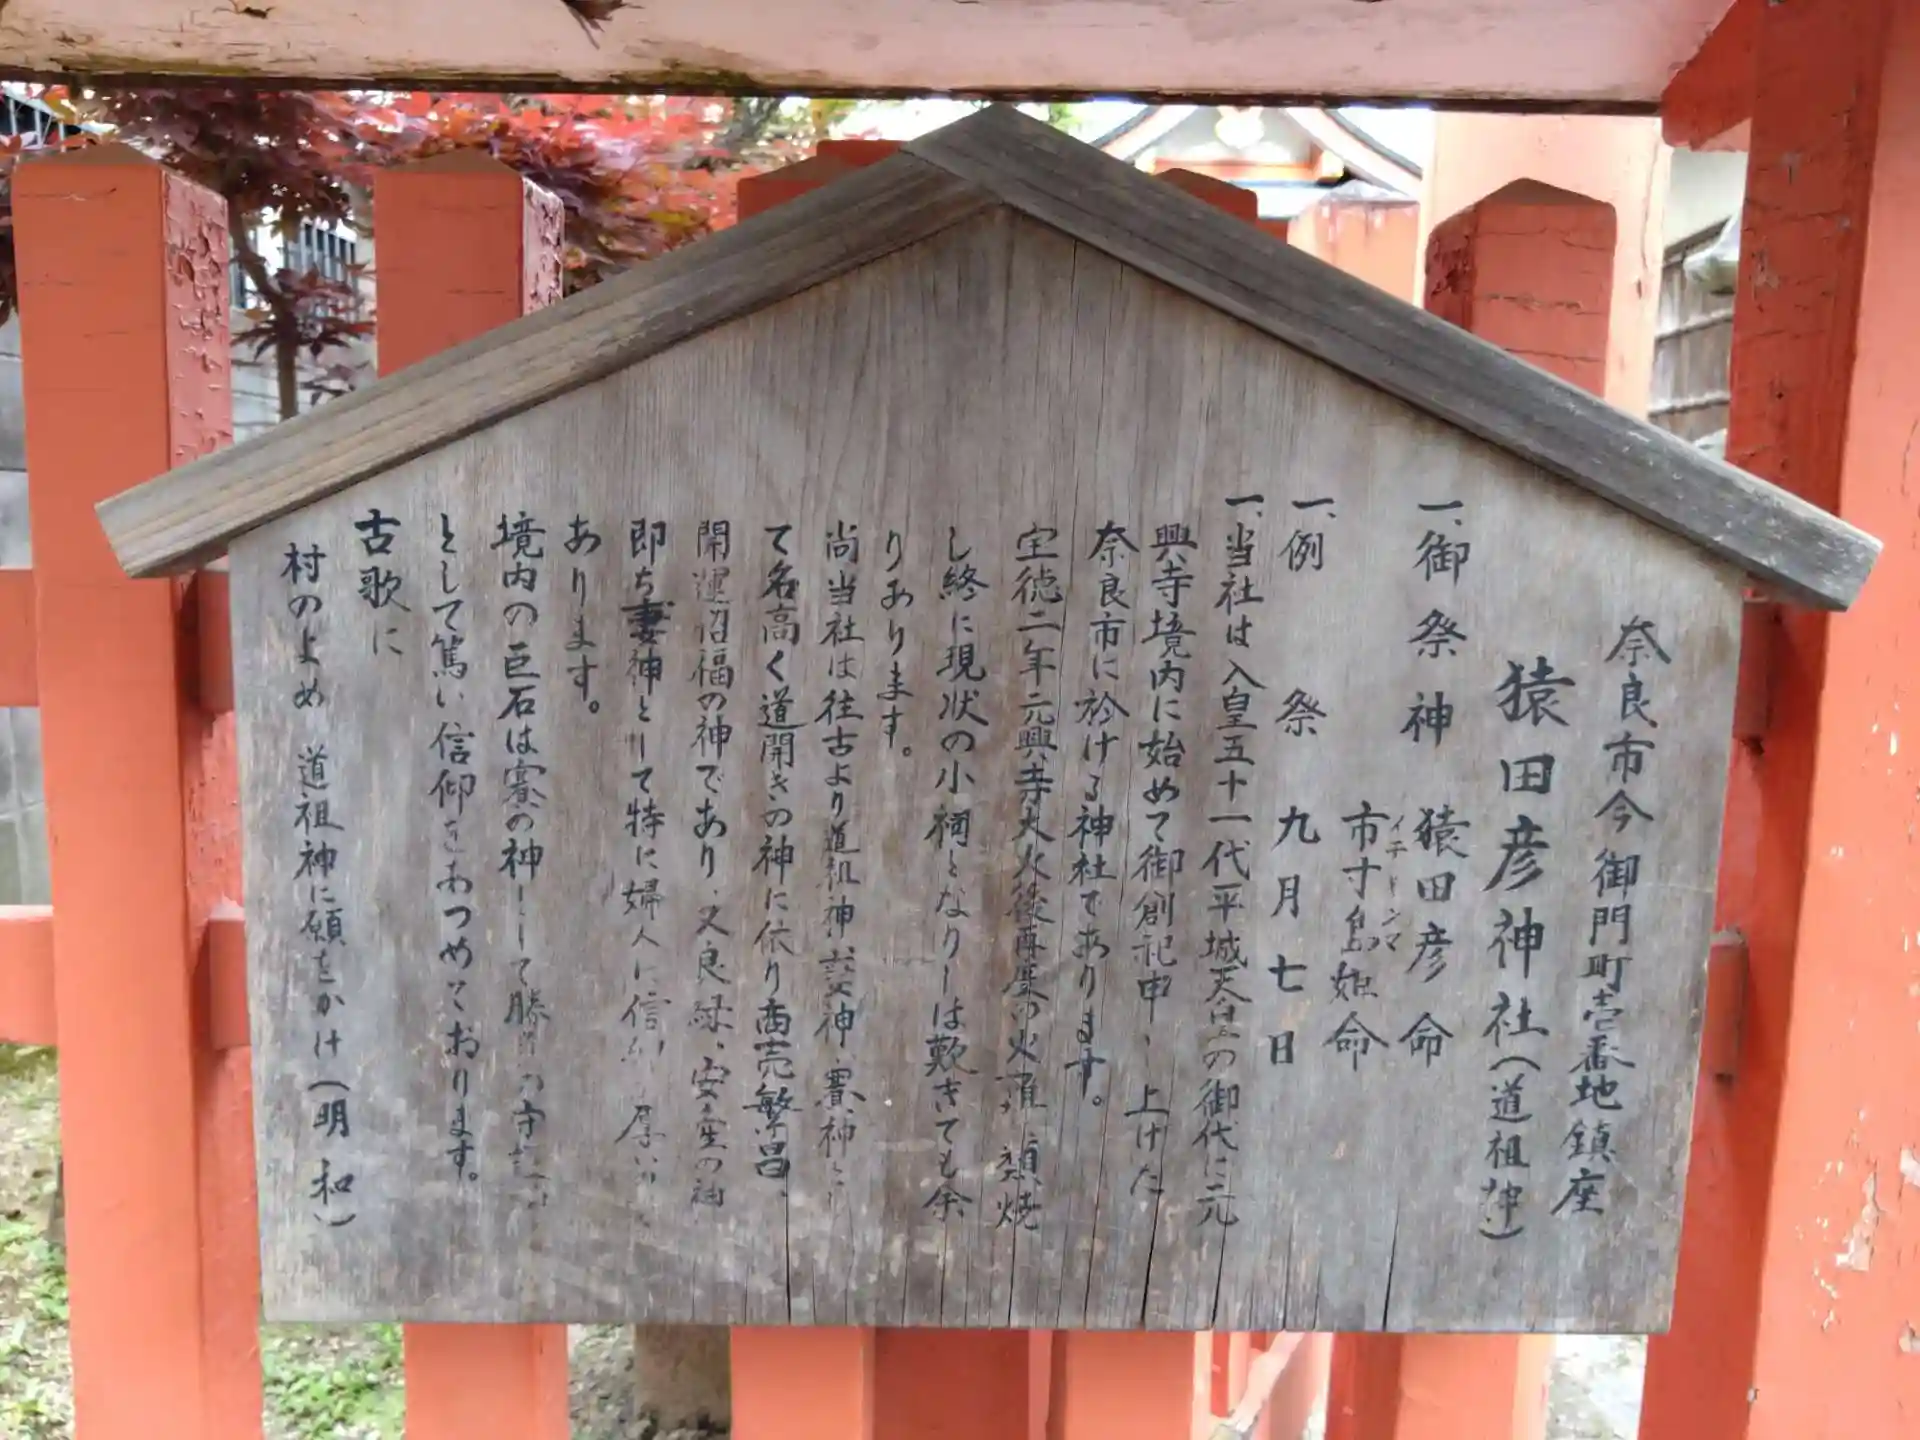 奈良市今御門町壱番地鎮座
猿田彦神社(道祖神)
一、御祭神 猿田彦命
市寸島姫命
イチ
シマ
一、例 祭 九月七日
一、当社は人皇五十一代平城天皇の御代に元
興寺境内に始めて御創祀申し上げた
奈良市に於ける神社であります。
宝徳二年元興寺大火後再度の火 類焼
し終に現状の小祠となりしは歎きても余
りあります。
尚当社は往古より道祖神 神 賽神と
て名高く道開きの神に依り商売繁昌、
開運招福の神であり、又良縁、安産の神
即ち妻神として特に婦人に信仰 厚い
あります。
境内の巨石は賽の神として勝 の守
として篤い信仰をあつめております。
古歌に
村のよめ 道祖神に願をかけ(明 和)